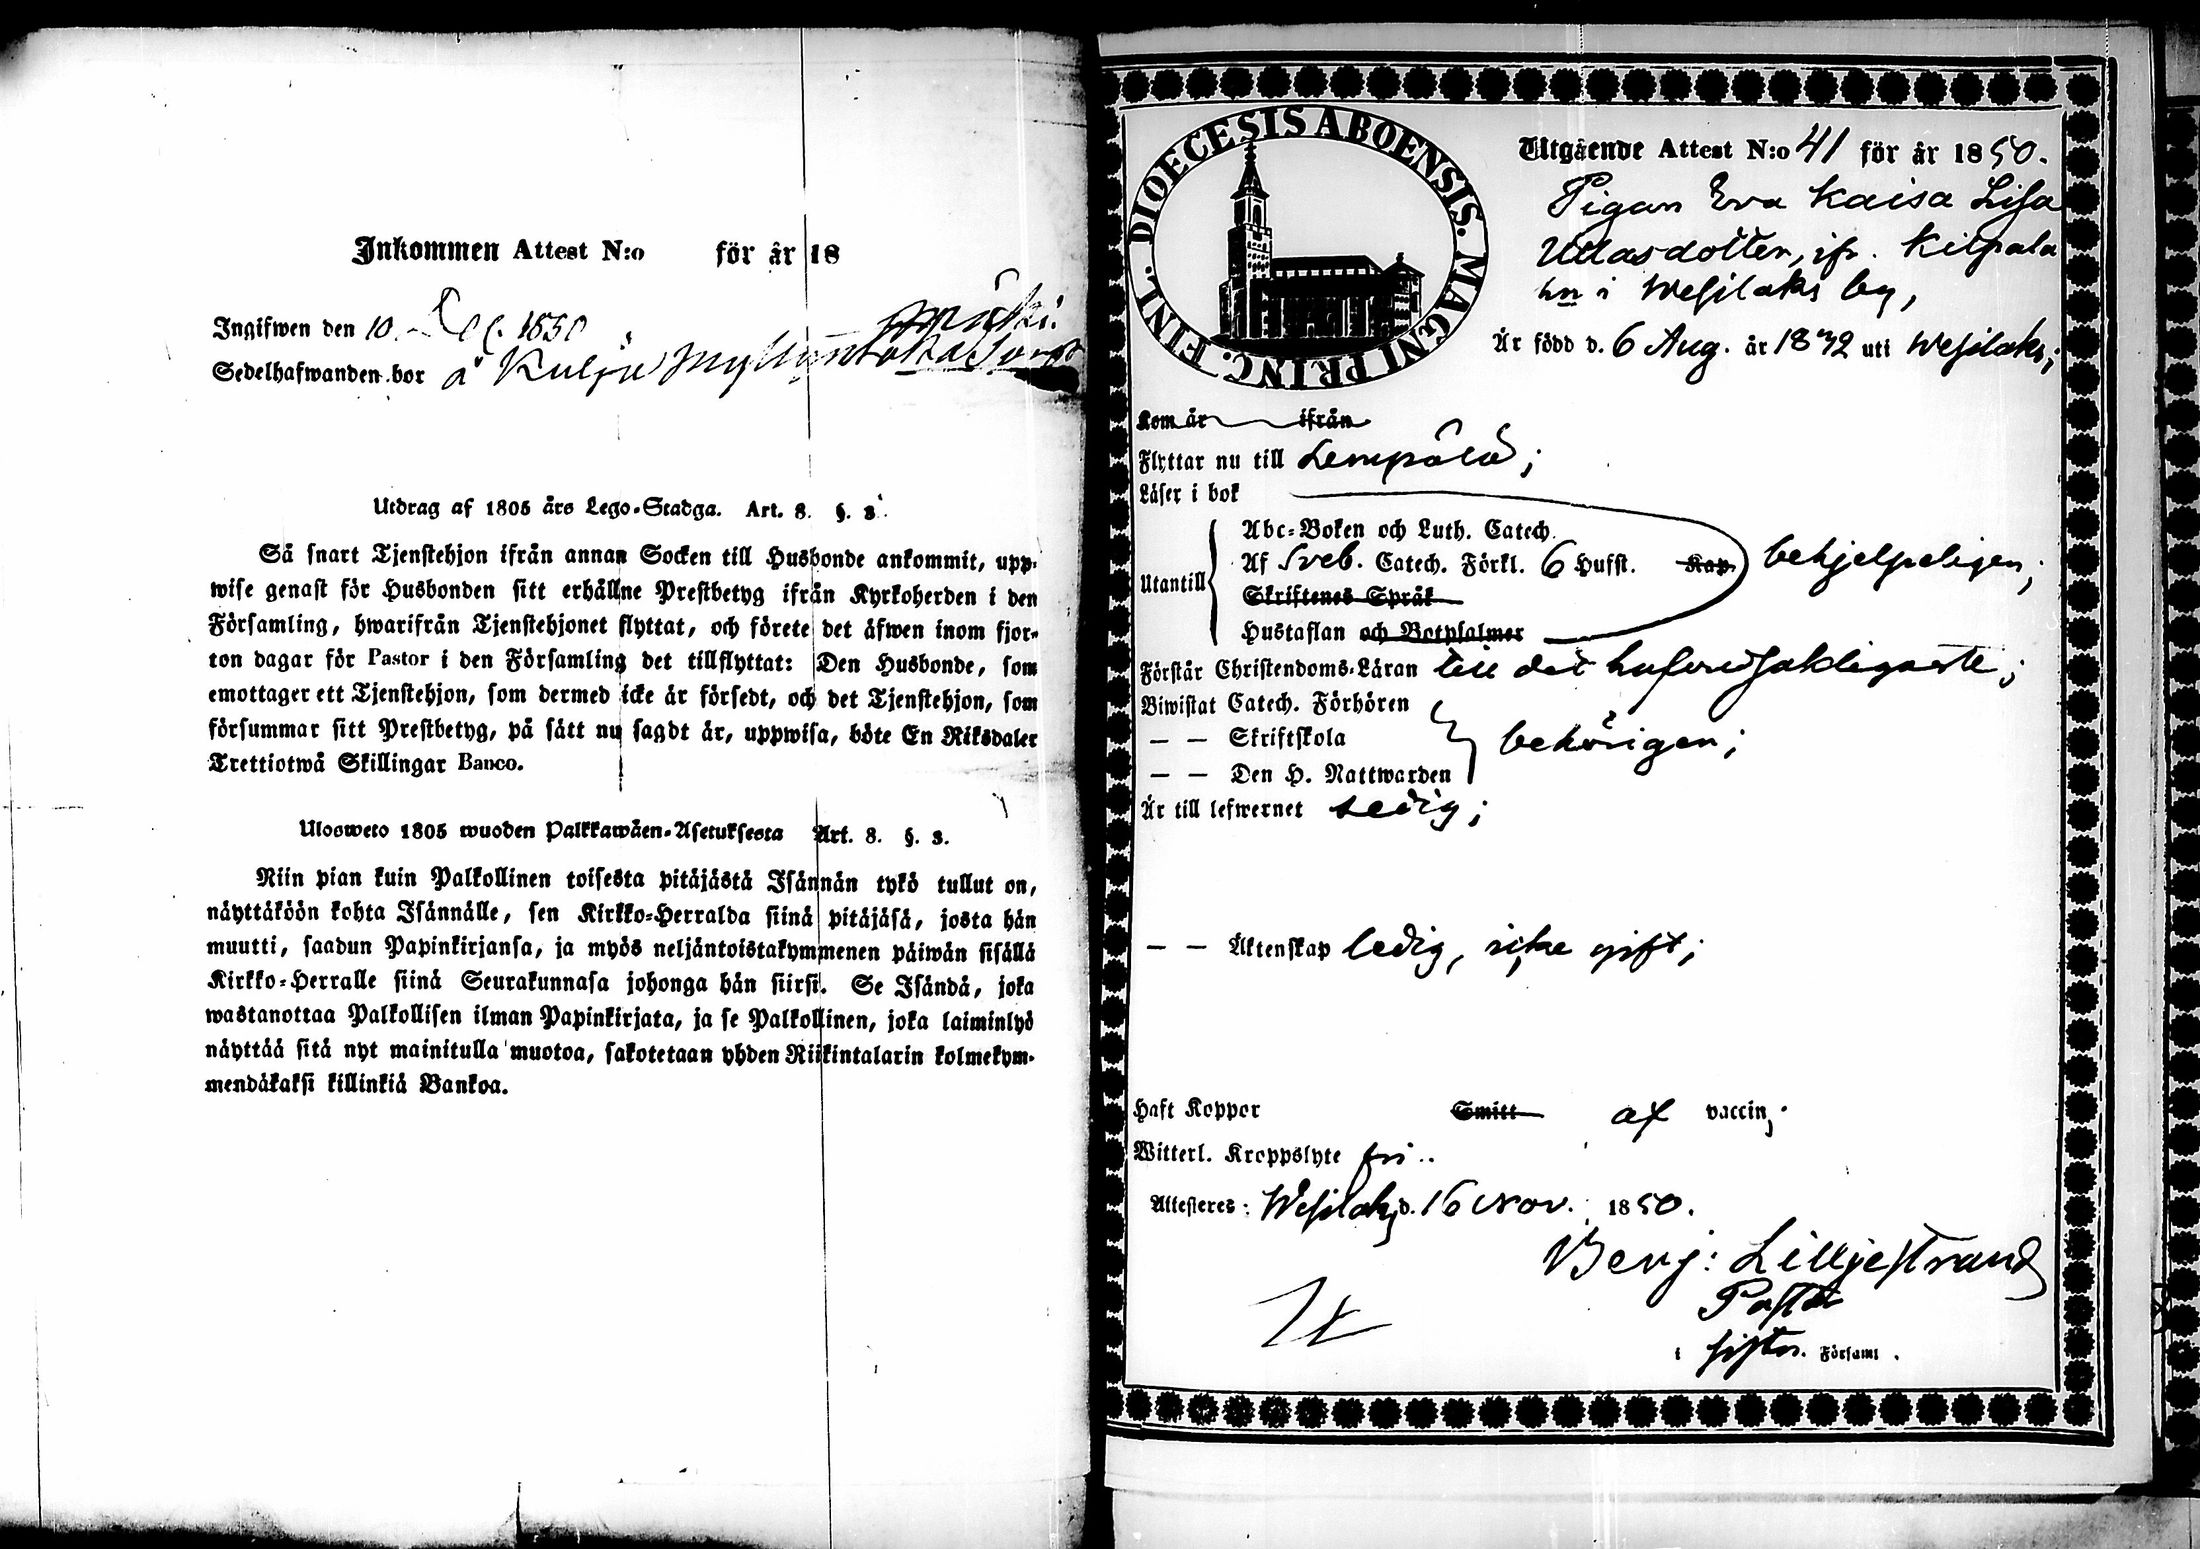 Inkommen Attest N:o för år 18
Ingifwen den 10 Dec. 1850
Sedelhafwanden bor å Kulju
Utdrag af 1805 års Lego-Stadga. Art. 8. §. 3.
Så snart Tjenstehjon ifrån annan Socken till Husbonde ankommit, upp-
wise genast för Husbonden sitt erhållne Prestbetyg ifrån Kyrkoherden i den
Församling, hwarifrån Tjenstehjonet flyttat, och förete det äfwen inom fjor-
ton dagar för Pastor i den Församling det tillflyttat: Den Husbonde, som
emottager ett Tjenstehjon, som dermed icke är försedt, och det Tjenstehjon, som
försummar sitt Prestbetyg, på sätt nu sagdt är, uppwisa, böte En Riksdaler
Trettiotwå Skillingar Banco.
Ulosweto 1805 wuoden Palkkawäen-Asetuksesta Art. 8. §. 3.
Niin pian kuin Palkollinen toisesta pitäjästä Isännän tykö tullut on,
näyttäköön kohta Isännälle, sen Kirkko-Herralda siinä pitäjäsä, josta hän
muutti, saadun Papinkirjansa, ja myös neljäntoistakymmenen päiwän sisällä
Kirkko-Herralle siinä Seurakunnasa johonga hän siirsi. Se Isändä, joka
wastanottaa Palkollisen ilman Papinkirjata, ja se Palkollinen, joka laiminlyö
näyttää sitä nyt mainitulla muotoa, sakotetaan yhden Riikintalarin kolmekym-
mendäkaksi killinkiä Bankoa.
DIOECESIS ABOENSIS. MAGNI PRINC. FINL.
Utgående Attest N:o 41 för år 1850.
Pigan Eva Kaisa Lisa
Ullasdotter, ifr. Kilpala
hn i Wesilaks by,
Är född d. 6 Aug. år 1832 uti Wesilaks;
Kom år ifrån
Flyttar nu till Lempälä;
Läser i bok
Utantill
Abc-Boken och Luth. Catech.
Af Sveb. Catech. Förkl. 6 Hufst. Kap. behjelpeligen;
Skriftenes Språk
Hustaflan och Botpsalmer
Förstår Christendoms-Läran till det hufvudsakligaste;
Biwistat Catech. Förhören
— — Skriftskola behörigen;
— — Den H. Nattwarden
Är till lefwernet sedig;
— — Äktenskap ledig, icke gift;
Haft Koppor Smitt af vaccin;
Witterl. Kroppslyte fri..
Attesteres: Wesilaks d. 16 Nov. 1850.
Benj: Lilljestrand
Pastor
i Församl.